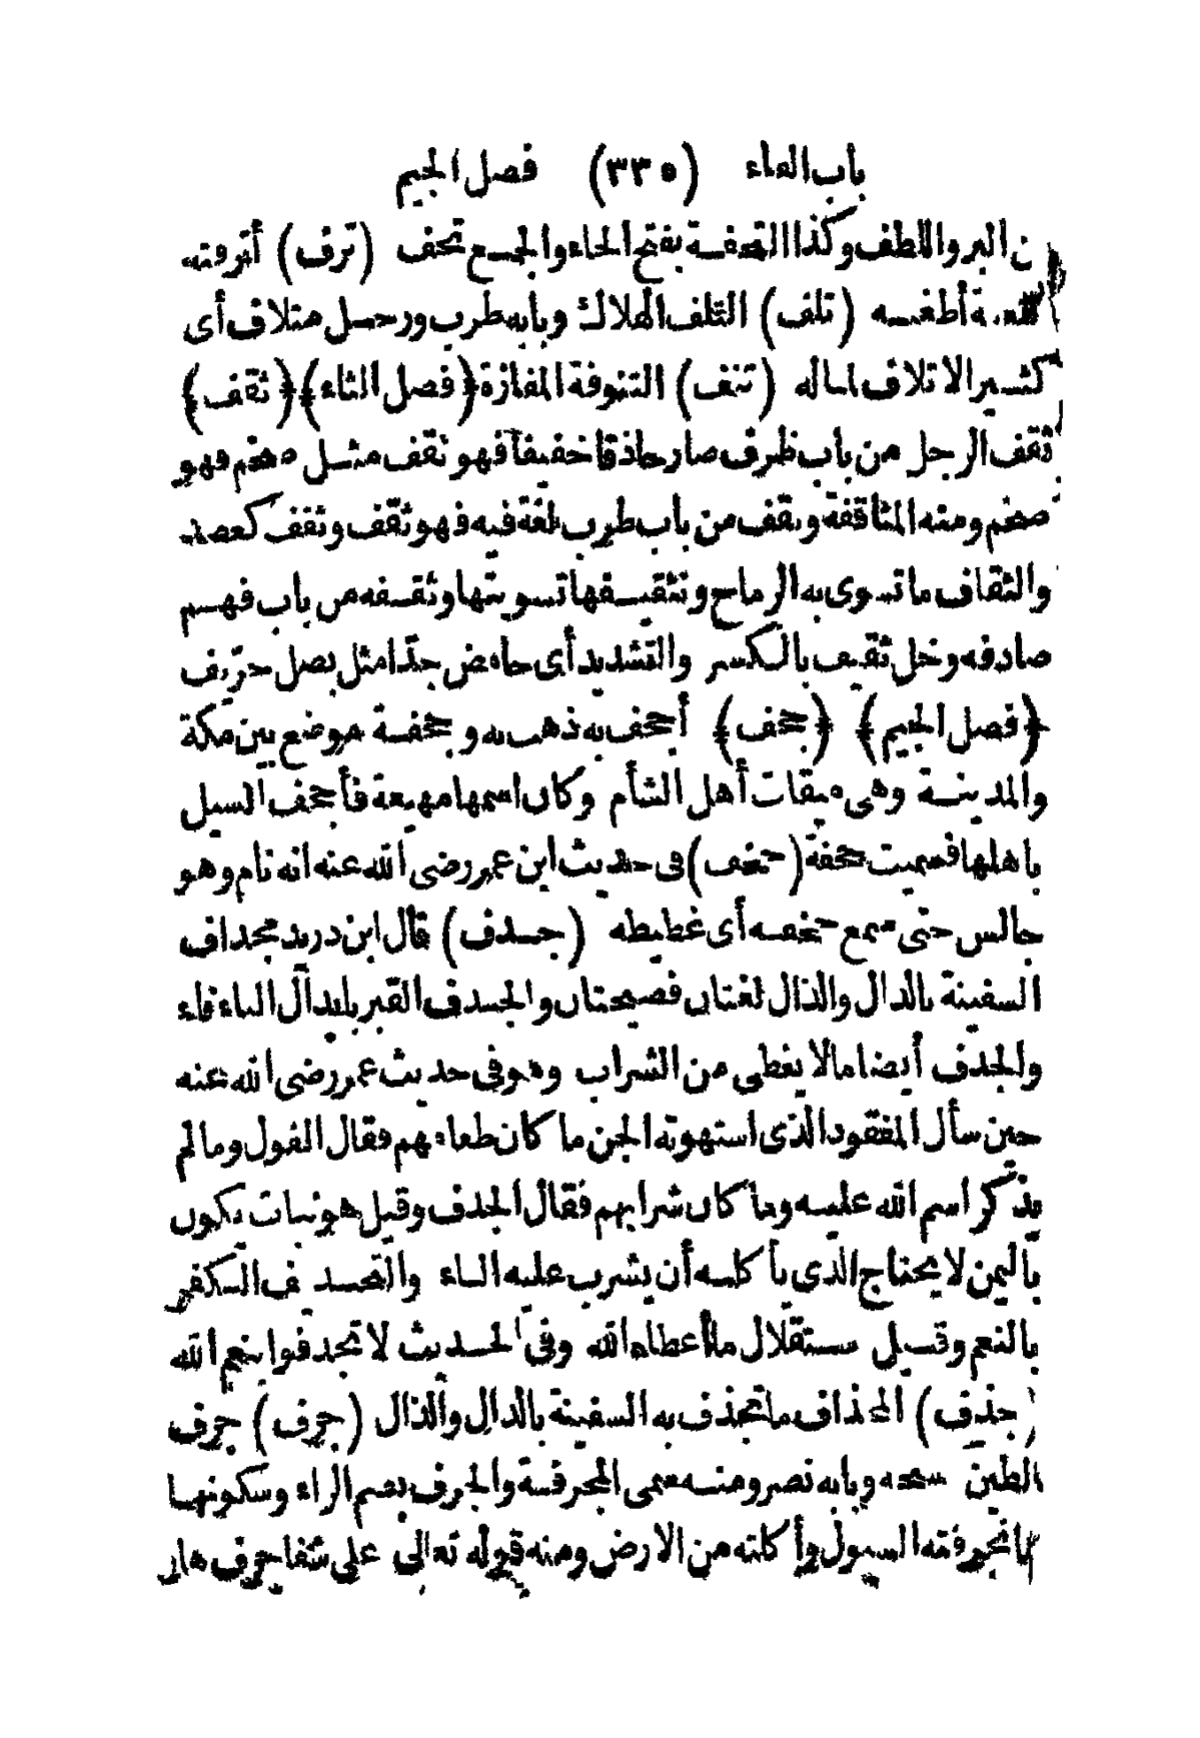 باب الفاء (٣٣٥) فصل الجيم
ن البر واللطف وكذا التحفة بفتح الحاء والجمع تحف (ترف) أترفته
النعمة أطغته (تلف) التلف الهلاك وبابه طرب ورجل متلاف أى
كثير الاتلاف لماله (تنف) التنوفة المفازة ﴿فصل الثاء﴾ ﴿ثقف﴾
ثقف الرجل من باب ظرف صار حاذقا خفيفا فهو ثقف مثل ضخم فهو
ضخم ومنه المثاقفة وثقف من باب طرب لغة فيه فهو ثقف وثقف كعضد
والثقاف ما تسوى به الرماح وتثقيفها تسويتها وثقفه من باب فهم
صادفه وخل ثقيف بالكسر والتشديد أى حامض جدّا مثل بصل حرّيف
﴿فصل الجيم﴾ ﴿جحف﴾ أجحف به ذهب به وجحفة موضع بين مكة
والمدينة وهى ميقات أهل الشأم وكان اسمها مهيعة فأجحف السيل
باهلها فسميت جحفة (جخف) فى حديث ابن عمر رضى الله عنه انه نام وهو
جالس حتى سمع جخيفه أى غطيطه (جدف) قال ابن دريد مجداف
السفينة بالدال والذال لغتان فصيحتان والجدف القبر بابدال الثاء فاء
والجدف أيضا ما لا يغطى من الشراب وهو فى حديث عمر رضى الله عنه
حين سأل المفقود الذى استهوته الجن ما كان طعامهم فقال الفول وما لم
يذكر اسم الله عليه وما كان شرابهم فقال الجدف وقيل هو نبات يكون
باليمن لا يحتاج الذى يأكله أن يشرب عليه الماء والتجديف الكفر
بالنعم وقيل استقلال ما أعطاه الله وفى الحديث لا تجدفوا بنعم الله
(جذف) المجذاف ما تجذف به السفينة بالدال والذال (جرف) جرف
الطين كسحه وبابه نصر ومنه سمى المجرفة والجرف بضم الراء وسكونها
ما تجرفته السيول وأكلته من الارض ومنه قوله تعالى على شفا جرف هار